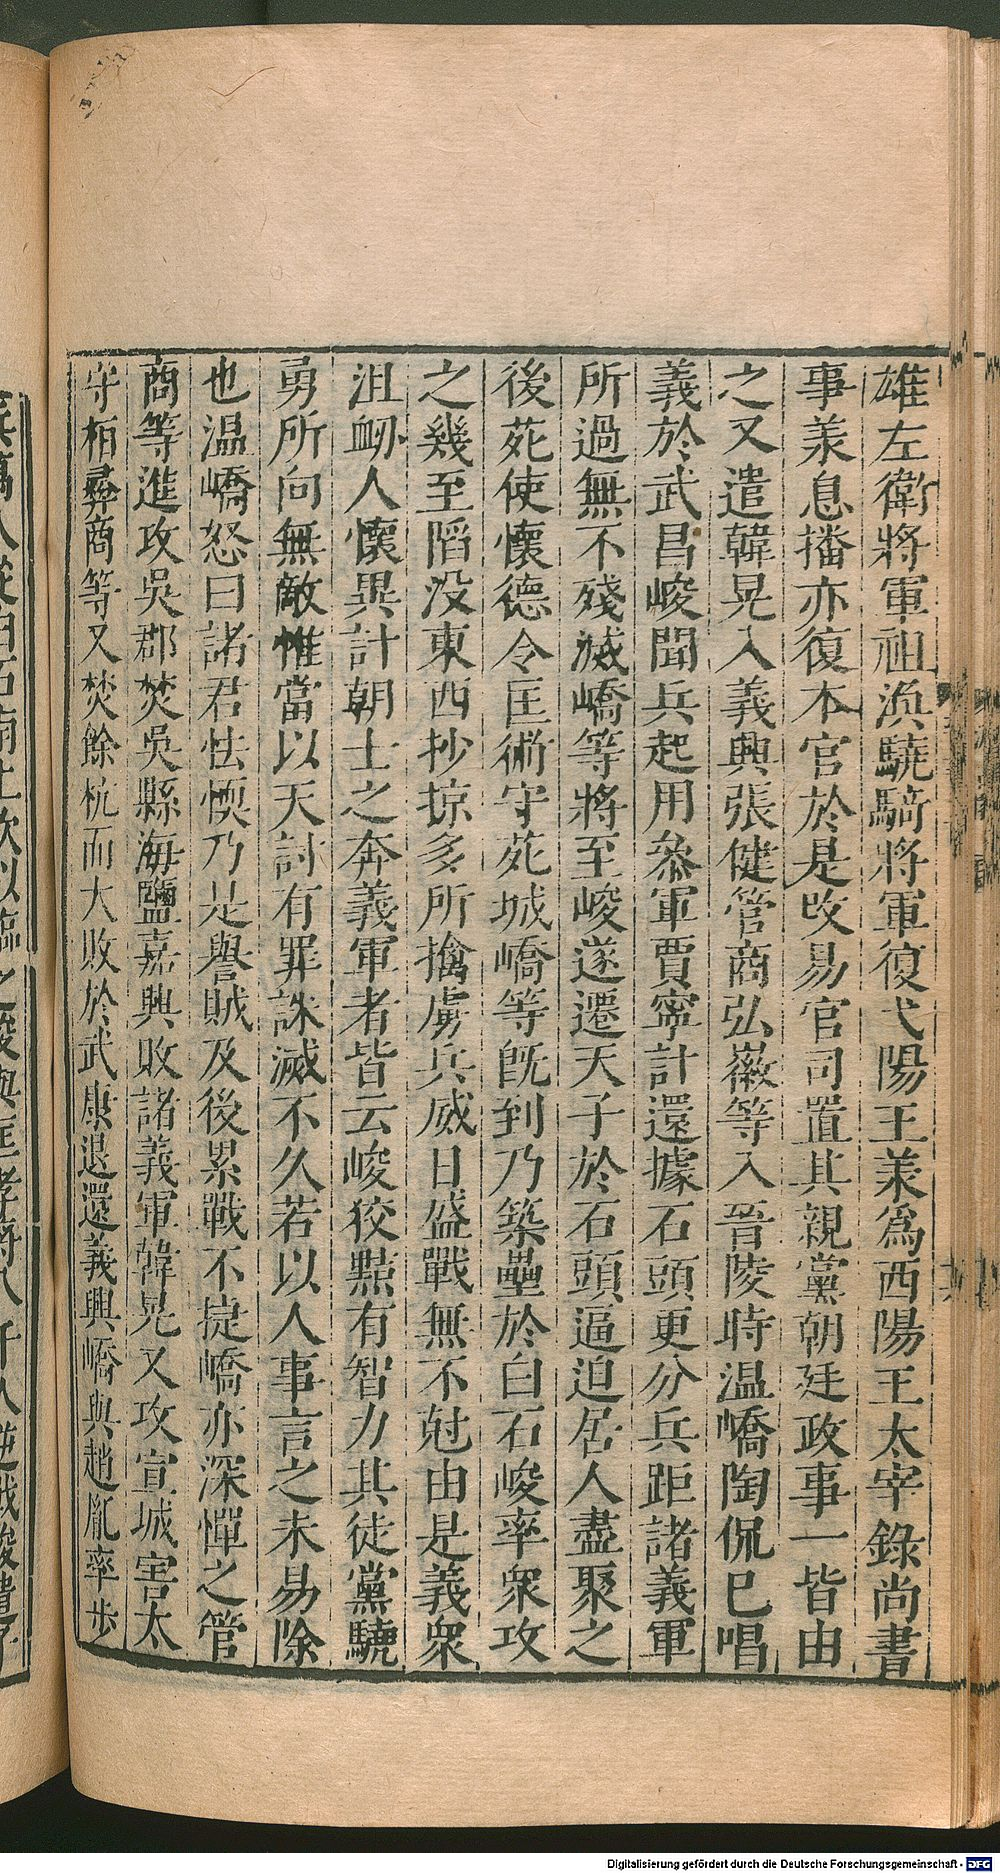 雄左衛將軍祖渙驍騎將軍復弋陽王羕爲西陽王太宰錄尚書
事羕息播亦復本官於是改易官司置其親黨朝廷政事一皆由
之又遣韓晃入義興張健管商弘徽等入晉陵時温嶠陶侃已唱
義於武昌峻聞兵起用叅軍賈寧計還據石頭更分兵距諸義軍
所過無不殘滅嶠等將至峻遂遷天子於石頭逼迫居人盡聚之
後苑使懷德令匡術守苑城嶠等旣到乃築壘於白石峻率衆攻
之幾至陷没東西抄掠多所擒虜兵威日盛戰無不尅由是義衆
沮衂人懷異計朝士之奔義軍者皆云峻狡黠有智力其徒黨驍
勇所向無敵惟當以天討有罪誅滅不久若以人事言之未易除
也温嶠怒曰諸君怯愞乃是譽賊及後累戰不捷嶠亦深憚之管
商等進攻吳郡焚吳縣海鹽嘉興敗諸義軍韓晃又攻宣城害太
守桓彛商等又焚餘杭而大敗於武康退還義興嶠與趙胤率步
Digitalisierung gefördert durch die Deutsche Forschungsgemeinschaft - DFG